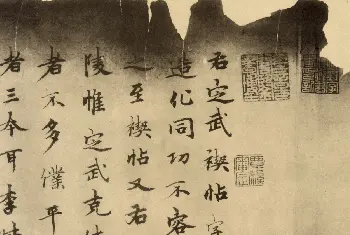 右定武禊帖字
造化同功不容
之至禊帖又右
陵惟定武克
者不多僕平
者三本耳李